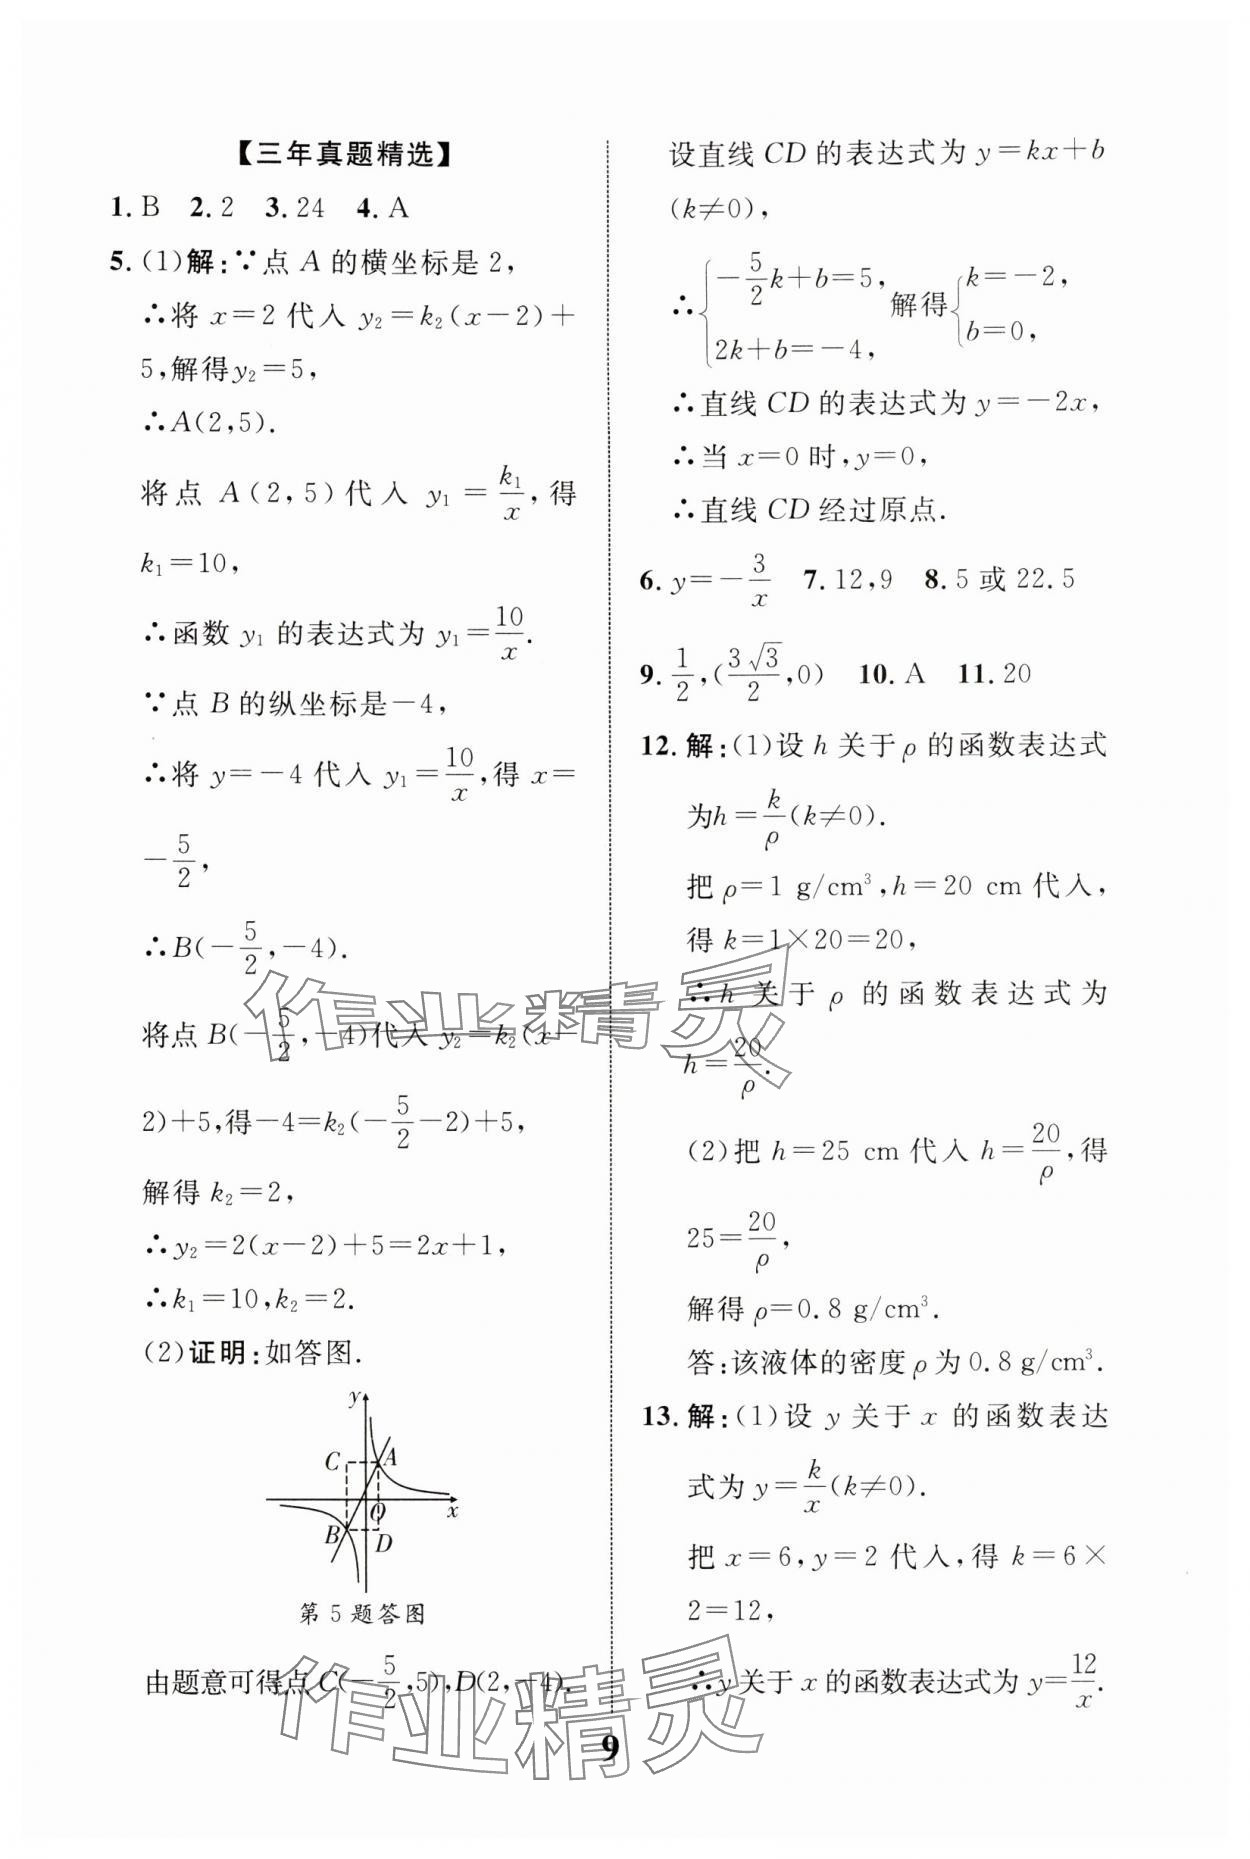 【三年真题精选】
1. B 2. 2 3. 24 4. A
5. (1)解:∵点 A 的横坐标是 2,
∴将 x=2 代入 y₂=k₂(x-2)+
5,解得y₂=5,
∴A(2,5).
将点 A(2,5)代入 y₁=k₁/x,得
k₁=10,
∴函数 y₁ 的表达式为 y₁=10/x.
∵点 B 的纵坐标是-4,
∴将 y=-4 代入 y₁=10/x,得 x=
-5/2,
∴B(-5/2,-4).
将点 B(-5/2,-4)代入 y₂=k₂(x-
2)+5,得-4=k₂(-5/2-2)+5,
解得 k₂=2,
∴y₂=2(x-2)+5=2x+1,
∴k₁=10,k₂=2.
(2)证明:如答图.
y
C A
O x
B D
第 5 题答图
由题意可得点 C(-5/2,5),D(2,-4).
设直线 CD 的表达式为 y=kx+b
(k≠0),
∴{-5/2k+b=5, 2k+b=-4, 解得{k=-2, b=0,
∴直线 CD 的表达式为 y=-2x,
∴当 x=0 时,y=0,
∴直线 CD 经过原点.
6. y=-3/x 7. 12,9 8. 5 或 22.5
9. 1/2,(3√3/2,0) 10. A 11. 20
12. 解:(1)设 h 关于 ρ 的函数表达式
为h=k/ρ(k≠0).
把 ρ=1 g/cm³,h=20 cm 代入,
得 k=1×20=20,
∴h 关于 ρ 的函数表达式为
h=20/ρ.
(2)把 h=25 cm 代入 h=20/ρ,得
25=20/ρ,
解得 ρ=0.8 g/cm³.
答:该液体的密度 ρ 为 0.8 g/cm³.
13. 解:(1)设 y 关于 x 的函数表达
式为 y=k/x(k≠0).
把 x=6,y=2 代入,得 k=6×
2=12,
∴y 关于 x 的函数表达式为 y=12/x.
作业精灵
作业精灵
9